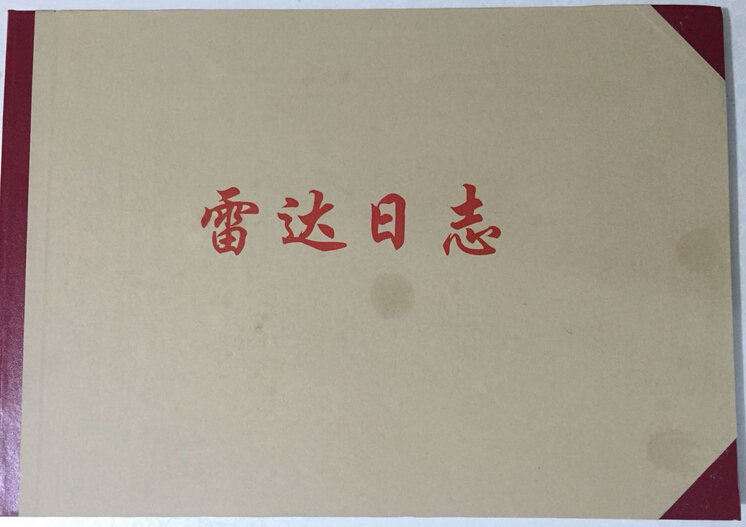 雷达日志